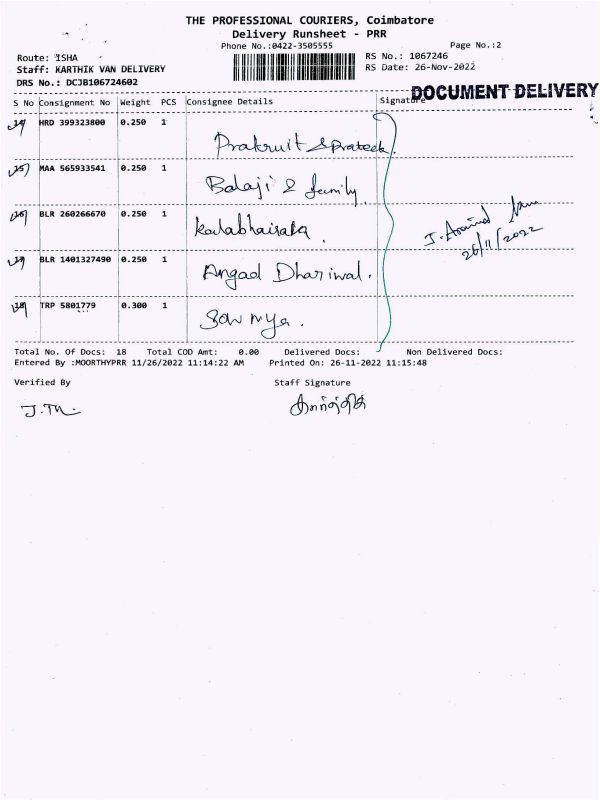 THE PROFESSIONAL COURIERS, Coimbatore
Delivery Runsheet - PRR
Phone No.:0422-3505555 Page No.:2
Route: ISHA RS No.: 1067246
Staff: KARTHIK VAN DELIVERY RS Date: 26-Nov-2022
DRS No.: DCJB106724602
DOCUMENT DELIVERY
S No Consignment No Weight PCS Consignee Details Signature
14 HRD 399323800 0.250 1
Prakruit & Prateek.
15 MAA 565933541 0.250 1
Balaji & family.
16 BLR 260266670 0.250 1
Kalabhairaka.
J. Aravind
26/11/2022
17 BLR 1401327490 0.250 1
Angad Dhariwal.
18 TRP 5801779 0.300 1
Sowmya.
Total No. Of Docs: 18 Total COD Amt: 0.00 Delivered Docs: Non Delivered Docs:
Entered By :MOORTHYPRR 11/26/2022 11:14:22 AM Printed On: 26-11-2022 11:15:48
Verified By Staff Signature